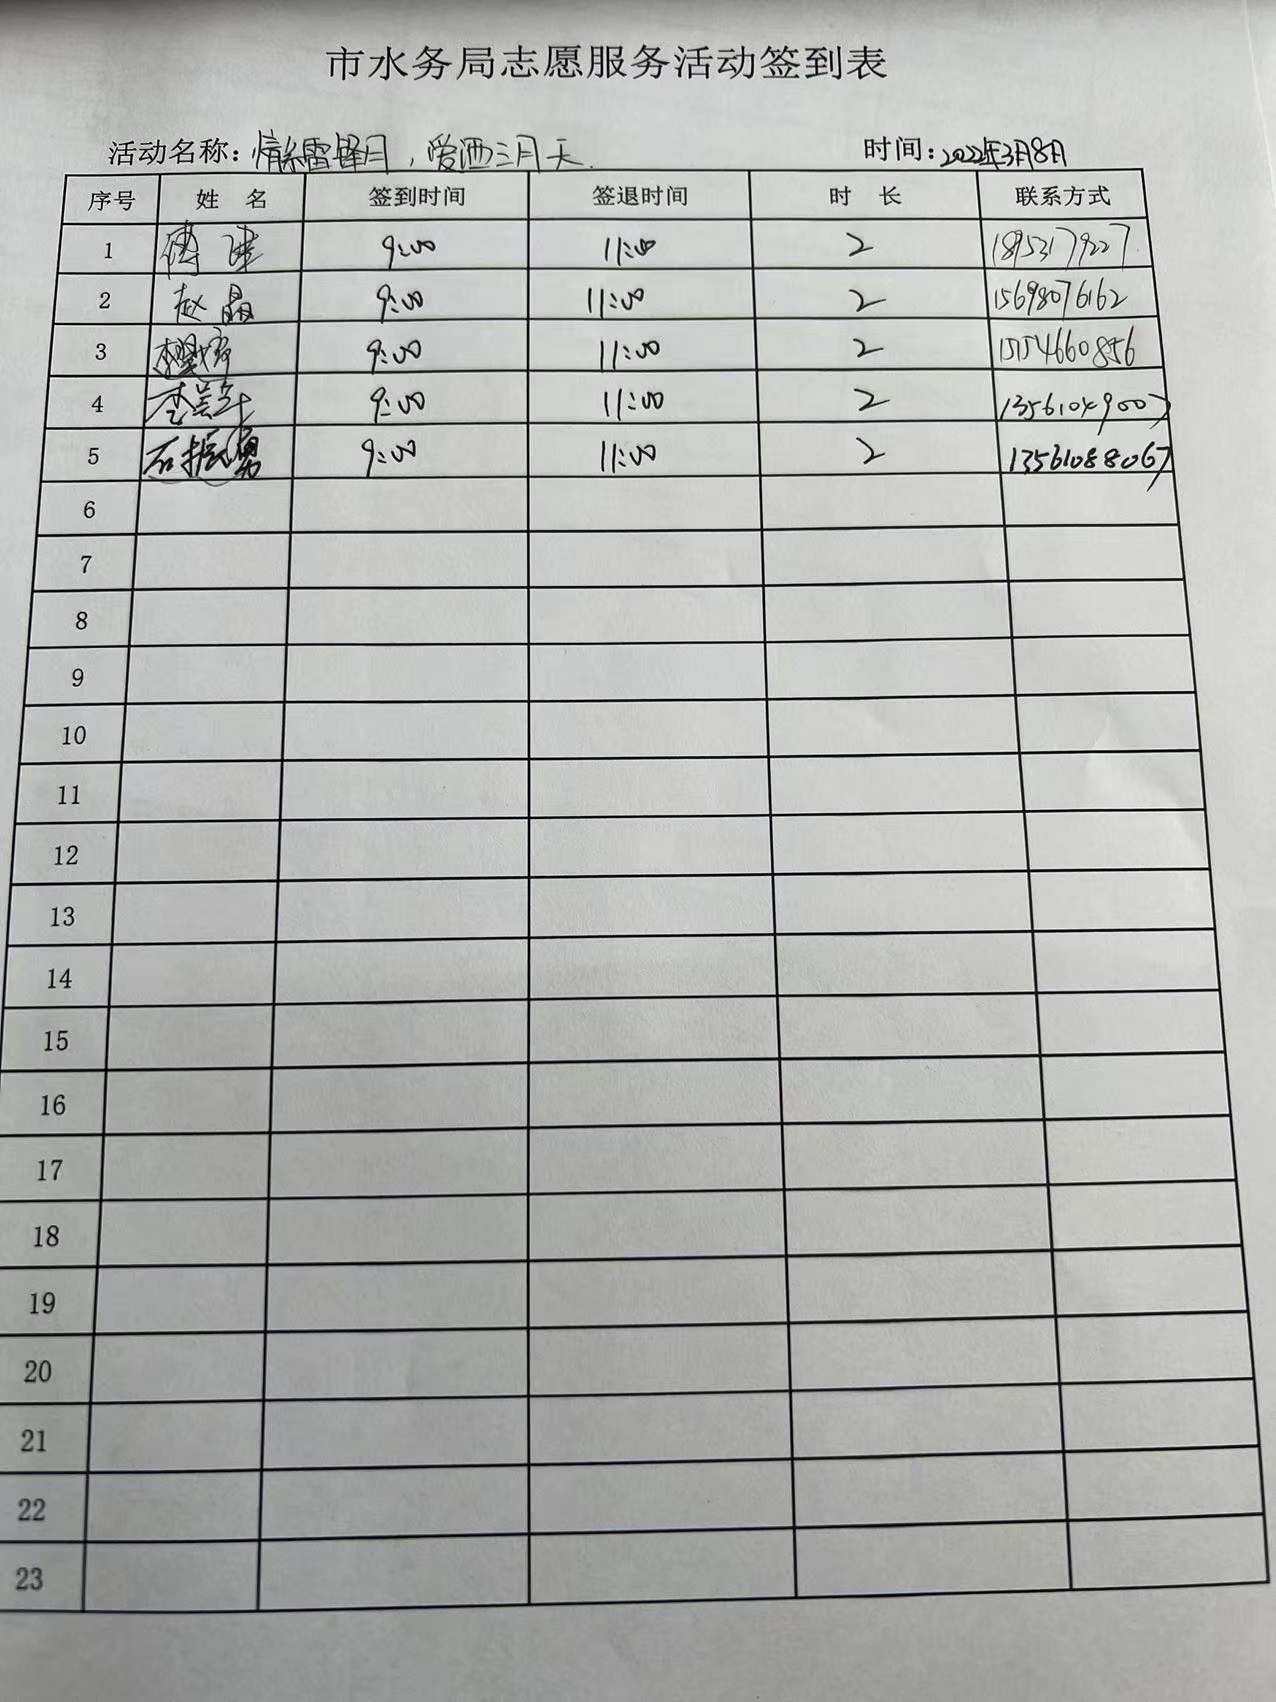 市水务局志愿服务活动签到表
活动名称：情系雷锋月，爱洒三月天 时间：2022年3月8日
序号 姓 名 签到时间 签退时间 时 长 联系方式
1 傅 9:00 11:00 2 18953179227
2 赵晶 9:00 11:00 2 15698076162
3 9:00 11:00 2 15154660856
4 李 9:00 11:00 2 13561049007
5 石振勇 9:00 11:00 2 13561088067
6
7
8
9
10
11
12
13
14
15
16
17
18
19
20
21
22
23